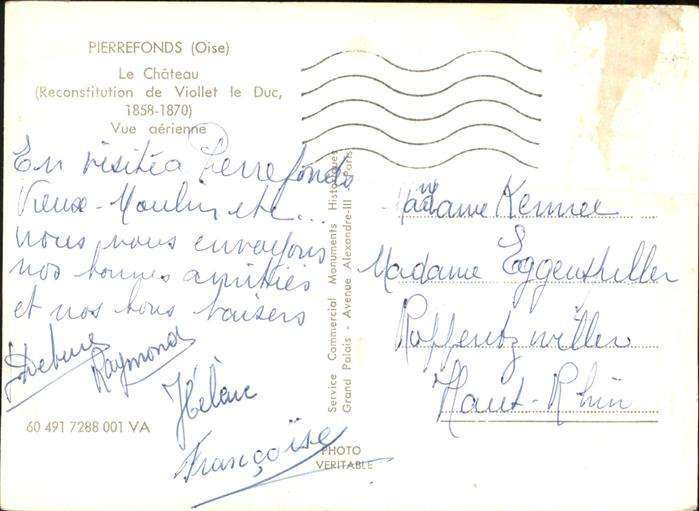 PIERREFONDS (Oise)
Le Château
(Reconstitution de Viollet le Duc,
1858-1870)
Vue aérienne
En visite à Pierrefonds
Vieux-Moulin etc...
nous vous envoyons
nos bonnes amitiés
et nos bons baisers
Raymond
Hélène
Françoise
60 491 7288 001 VA
Service Commercial Monuments Historiques
Grand Palais - Avenue Alexandre-III - Paris
PHOTO
VERITABLE
Madame
Madame
Roffentzwiller
Haut-Rhin